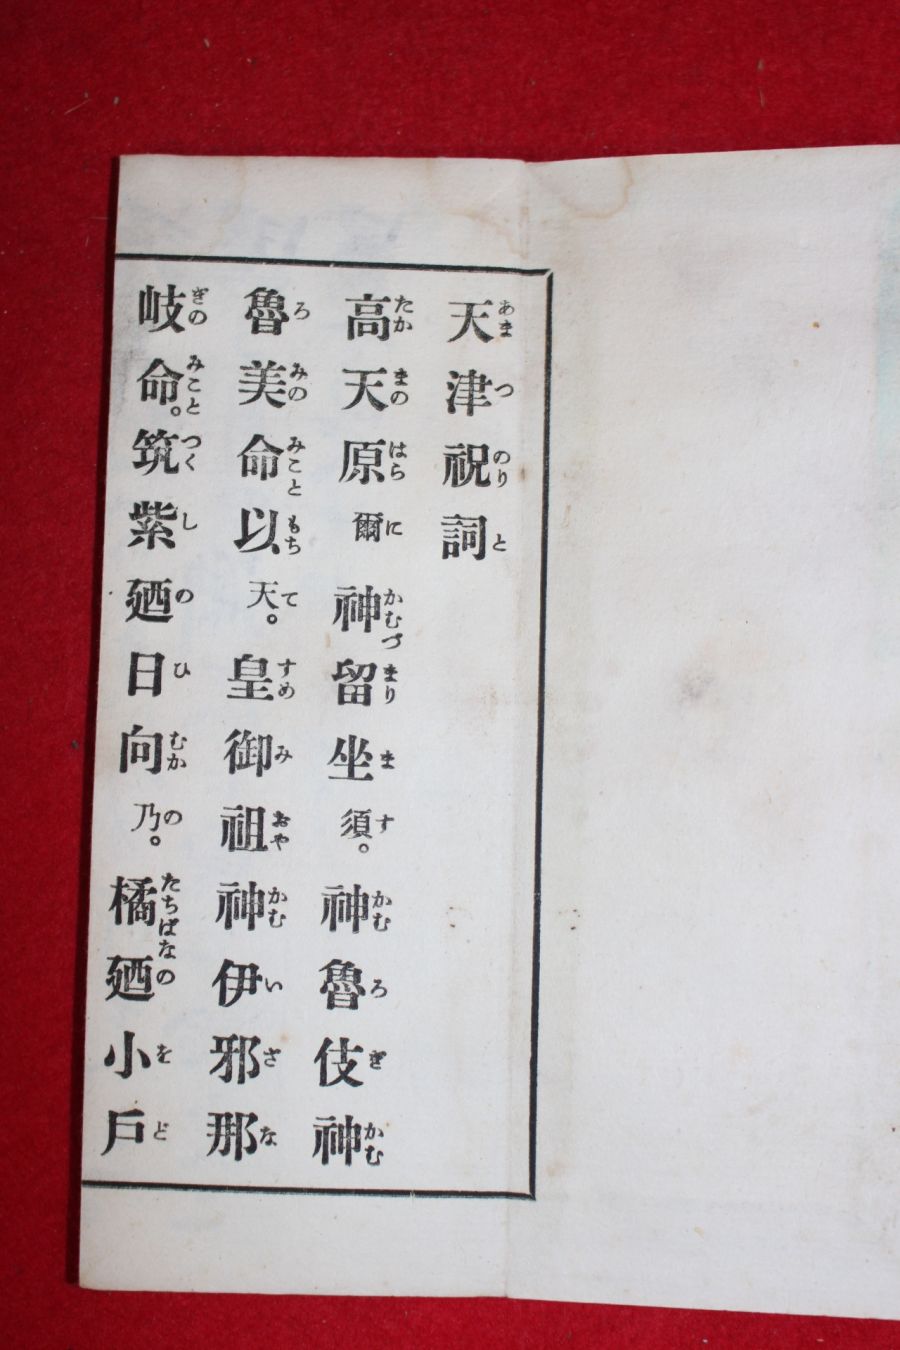 天津祝詞
高天原爾神留坐須。神魯伎神
魯美命以天。皇御祖神伊邪那
岐命。筑紫廼日向乃。橘廼小戶